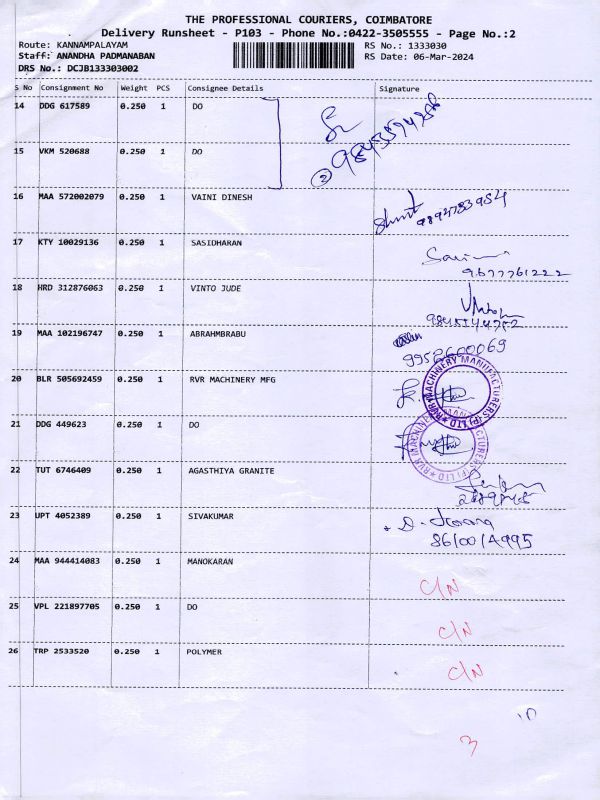 THE PROFESSIONAL COURIERS, COIMBATORE
Delivery Runsheet - P103 - Phone No.:0422-3505555 - Page No.:2
Route: KANNAMPALAYAM RS No.: 1333030
Staff: ANANDHA PADMANABAN RS Date: 06-Mar-2024
DRS No.: DCJB133303002
S No Consignment No Weight PCS Consignee Details Signature
14 DDG 617589 0.250 1 DO
15 VKM 520688 0.250 1 DO
16 MAA 572002079 0.250 1 VAINI DINESH
9894783954
17 KTY 10029136 0.250 1 SASIDHARAN
9677761222
18 HRD 312876063 0.250 1 VINTO JUDE
19 MAA 102196747 0.250 1 ABRAHMBRABU
9952600069
20 BLR 505692459 0.250 1 RVR MACHINERY MFG
RVR MACHINERY MANUFACTURERS (P) LTD
21 DDG 449623 0.250 1 DO
RVR MACHINERY MANUFACTURERS (P) LTD
22 TUT 6746409 0.250 1 AGASTHIYA GRANITE
23 UPT 4052389 0.250 1 SIVAKUMAR
24 MAA 944414083 0.250 1 MANOKARAN
C/N
25 VPL 221897705 0.250 1 DO
C/N
26 TRP 2533520 0.250 1 POLYMER
C/N
10
3